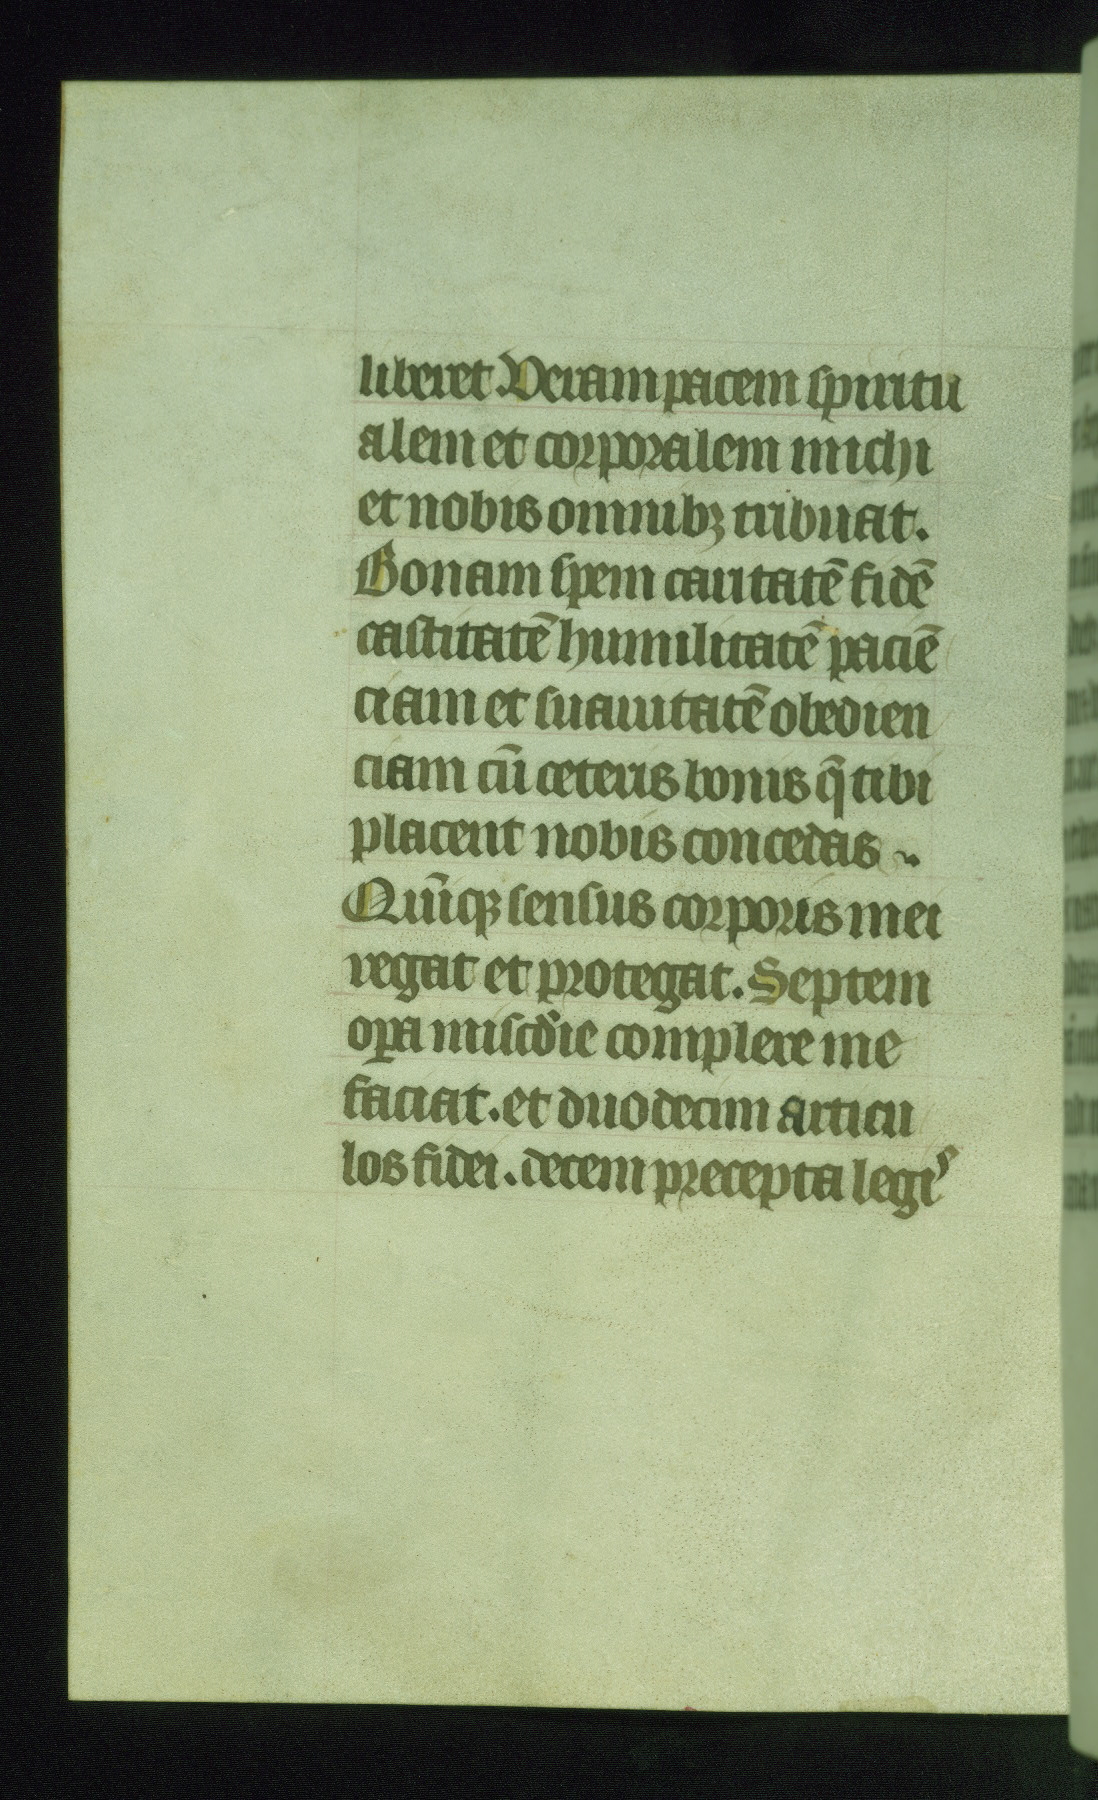 liberet. Veram pacem spiritu
alem et corporalem michi
et nobis omnibꝫ tribuat.
Bonam spem caritatē fidē
castitatē humilitatē paciē
ciam et suauitatē obedien
ciam cū ceteris bonis q̄ tibi
placent nobis concedas
Quīqꝫ sensus corporis mei
regat et protegat. Septem
oꝑa miscd̄ie complere me
faciat. et duodecim articu
los fidei. decem precepta legis